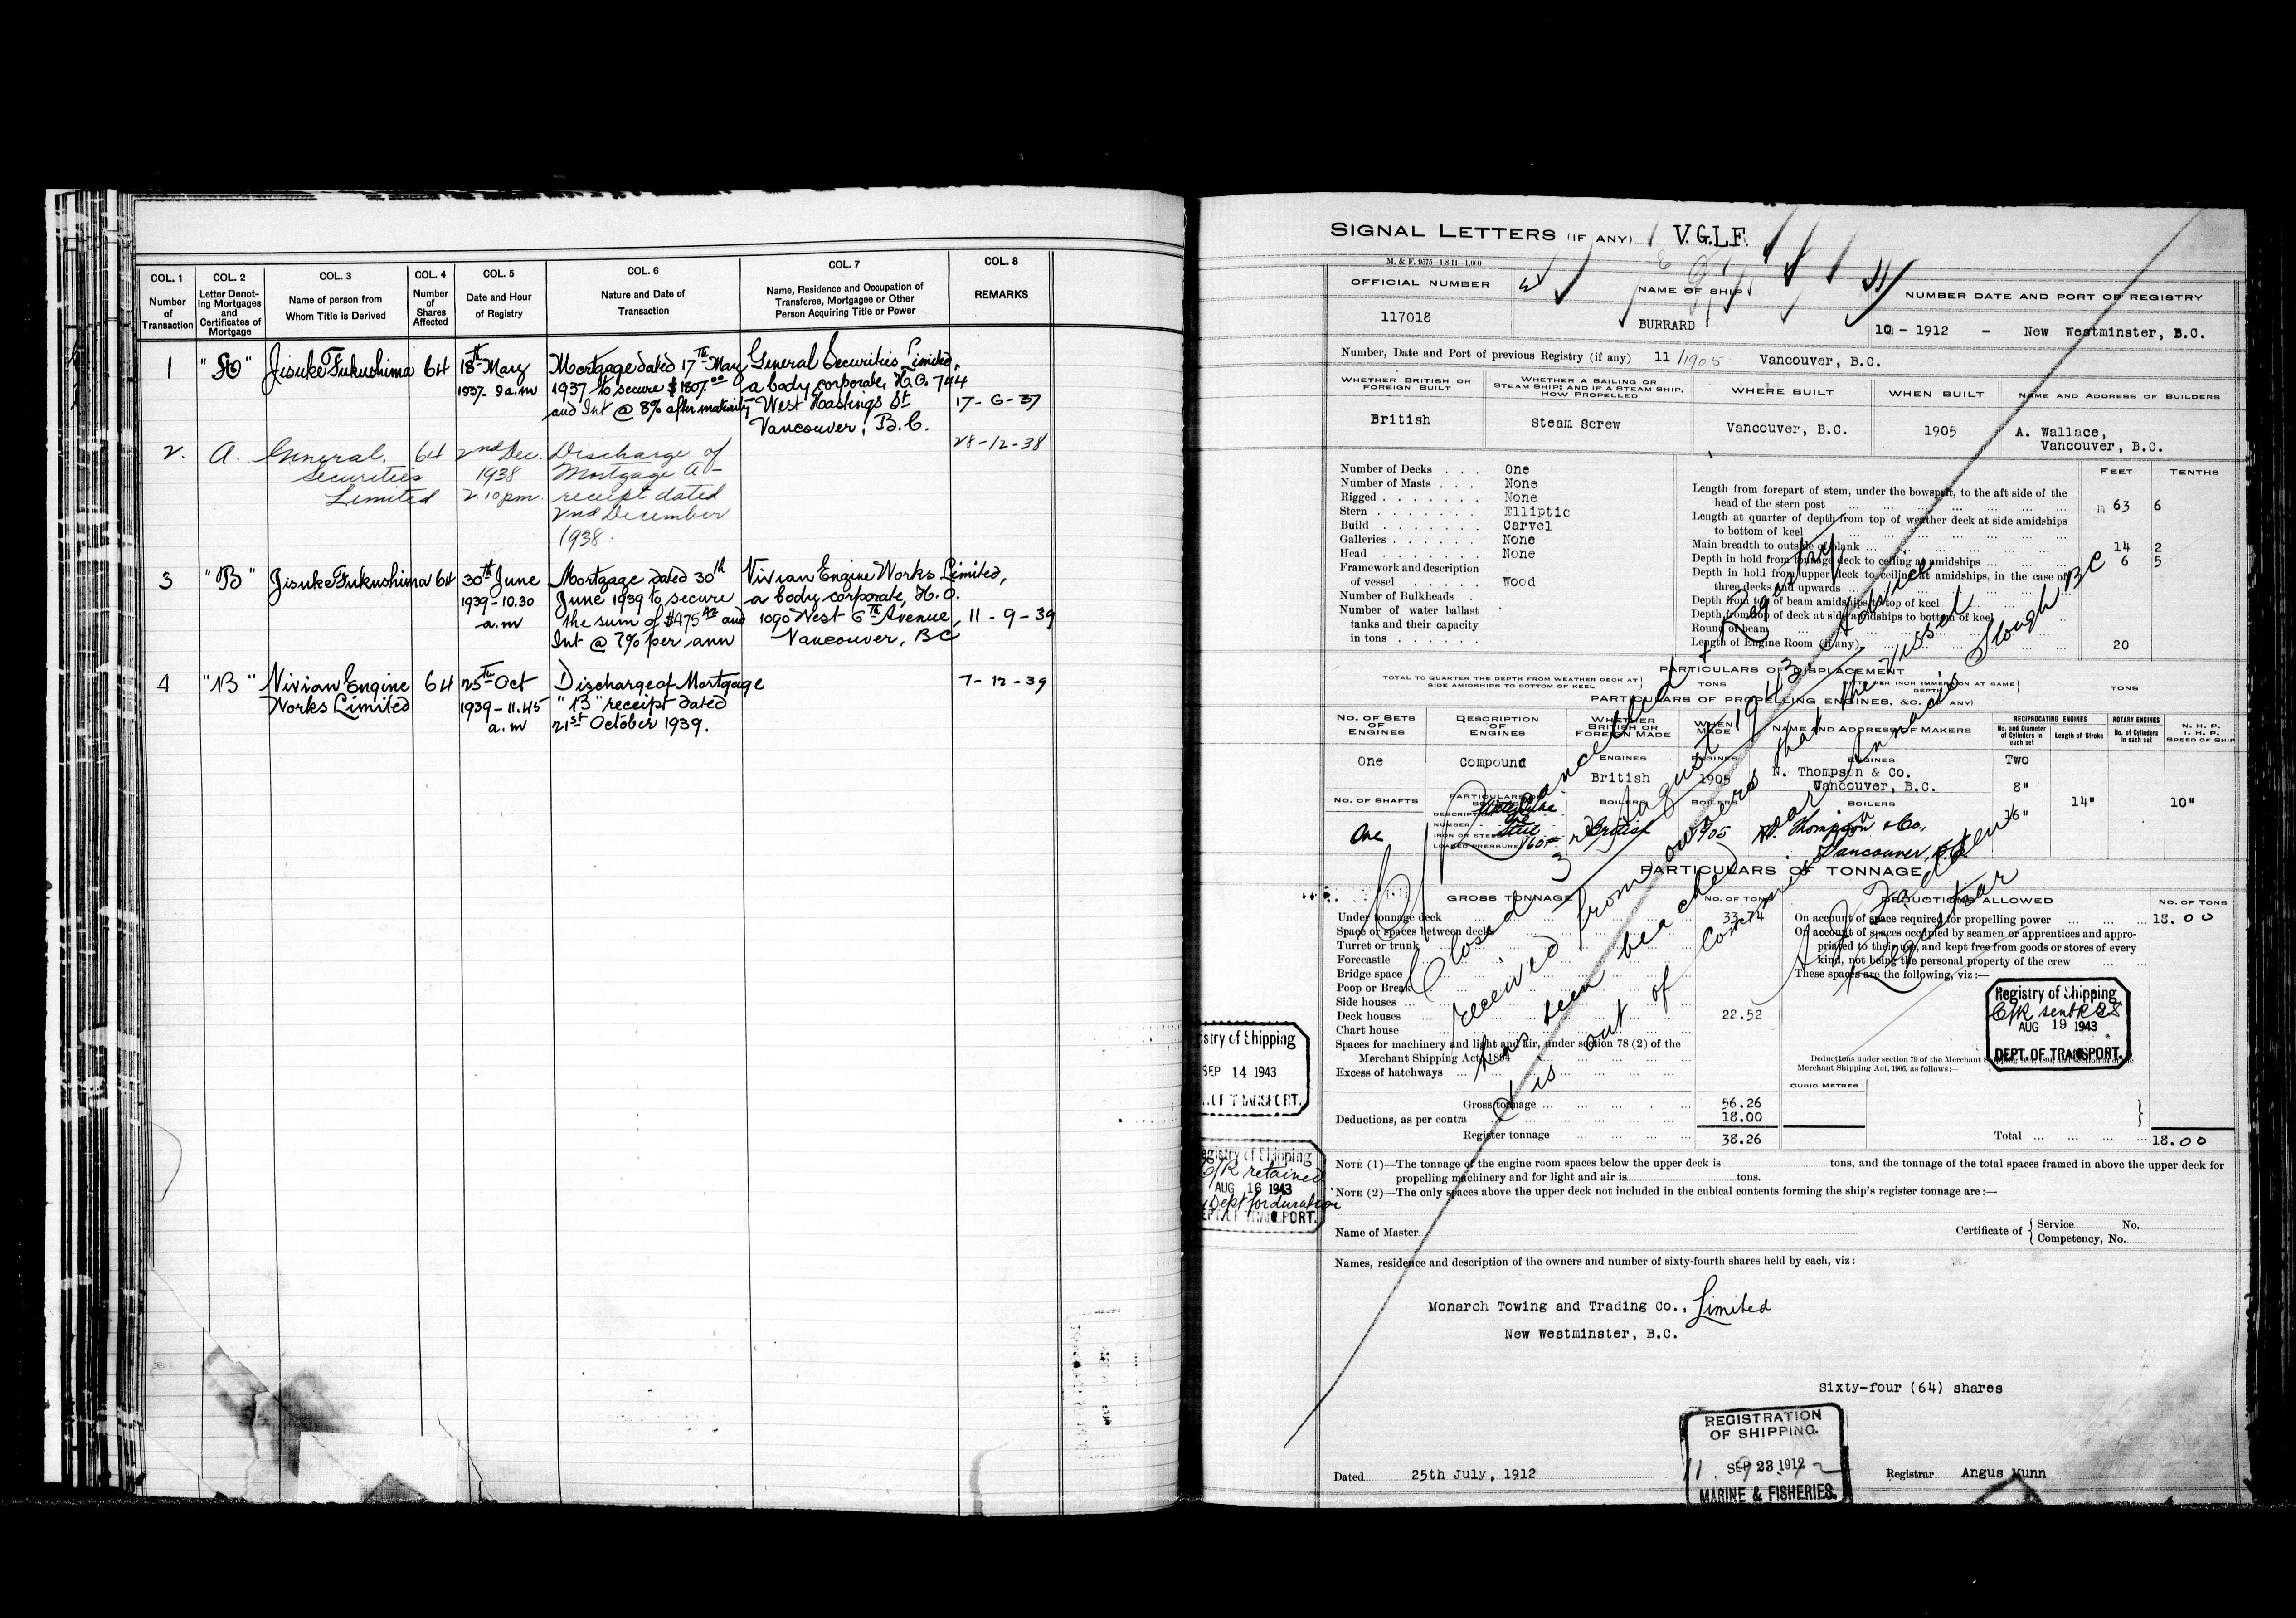 COL. 1 COL. 2 COL. 3 COL. 4 COL. 5 COL. 6 COL. 7 COL. 8
Number of Transaction
Letter Denoting Mortgages and Certificates of Mortgage
Name of person from Whom Title is Derived
Number of Shares Affected
Date and Hour of Registry
Nature and Date of Transaction
Name, Residence and Occupation of Transferee, Mortgagee or Other Person Acquiring Title or Power
REMARKS
1 "A" Jisuke Fukushima 64 18th May Mortgage dated 17th May General Securities Limited,
1937 - 9 a.m 1937 to secure $1807.00 a body corporate, H.O. 744
and Int @ 8% after maturity West Hastings St 17-6-37
Vancouver, B.C.
2. A. General 64 2nd Dec. Discharge of 28-12-38
Securities 1938 Mortgage A -
Limited 2.10 pm. receipt dated
2nd December
1938.
3 "B" Jisuke Fukushima 64 30th June Mortgage dated 30th Vivian Engine Works Limited,
1939 - 10.30 June 1939 to secure a body corporate, H.O.
a.m the sum of $475 and 1090 West 6th Avenue, 11-9-39
Int @ 7% per ann Vancouver, BC
4 "B" Vivian Engine 64 25th Oct Discharge of Mortgage 7-12-39
Works Limited 1939 - 11.45 "B" receipt dated
a.m 21st October 1939.
SIGNAL LETTERS (IF ANY) V.G.L.F.
M. & F. 9575-1-8-11-1,000
OFFICIAL NUMBER NAME OF SHIP NUMBER DATE AND PORT OF REGISTRY
117018 BURRARD 10 - 1912 - New Westminster, B.C.
Number, Date and Port of previous Registry (if any) 11/1905 Vancouver, B.C.
WHETHER BRITISH OR FOREIGN BUILT
WHETHER A SAILING OR STEAM SHIP; AND IF A STEAM SHIP, HOW PROPELLED
WHERE BUILT
WHEN BUILT
NAME AND ADDRESS OF BUILDERS
British Steam Screw Vancouver, B.C. 1905 A. Wallace,
Vancouver, B.C.
FEET TENTHS
Number of Decks . . . One
Number of Masts . . . None
Rigged . . . . . . . None
Stern . . . . . . . Elliptic
Build . . . . . . . Carvel
Galleries . . . . . . None
Head . . . . . . . None
Framework and description
of vessel . . . . . Wood
Number of Bulkheads .
Number of water ballast
tanks and their capacity
in tons . . . . . .
Length from forepart of stem, under the bowsprit, to the aft side of the
head of the stern post 63 6
Length at quarter of depth from top of weather deck at side amidships
to bottom of keel
Main breadth to outside of plank 14 2
Depth in hold from tonnage deck to ceiling at amidships 6 5
Depth in hold from upper deck to ceiling at amidships, in the case of
three decks and upwards
Depth from top of beam amidships to top of keel
Depth from top of deck at side amidships to bottom of keel
Round of beam
Length of Engine Room (if any) 20
PARTICULARS OF DISPLACEMENT
TOTAL TO QUARTER THE DEPTH FROM WEATHER DECK AT SIDE AMIDSHIPS TO BOTTOM OF KEEL TONS
TONS
PARTICULARS OF PROPELLING ENGINES, &C. ANY)
NO. OF SETS OF ENGINES
DESCRIPTION OF ENGINES
WHETHER BRITISH OR FOREIGN MADE
WHEN MADE
NAME AND ADDRESS OF MAKERS
RECIPROCATING ENGINES
No. and Diameter of Cylinders in each set
Length of Stroke
ROTARY ENGINES
No. of Cylinders in each set
N. H. P.
I. H. P.
SPEED OF SHIP
ENGINES ENGINES ENGINES
One Compound British 1905 N. Thompson & Co.
Vancouver, B.C.
Two
8"
16"
14"
10"
NO. OF SHAFTS PARTICULARS OF BOILERS BOILERS BOILERS BOILERS
DESCRIPTION
NUMBER One
IRON OR STEEL Steel
LOADED PRESSURE 160
One British 1905 N. Thompson & Co.,
Vancouver, B.C.
PARTICULARS OF TONNAGE
GROSS TONNAGE NO. OF TONS DEDUCTIONS ALLOWED NO. OF TONS
Under tonnage deck 33.74
Space or spaces between decks
Turret or trunk
Forecastle
Bridge space
Poop or Break
Side houses
Deck houses 22.52
Chart house
Spaces for machinery and light and air, under section 78 (2) of the
Merchant Shipping Act, 1894
Excess of hatchways
Gross tonnage 56.26
Deductions, as per contra 18.00
Register tonnage 38.26
On account of space required for propelling power 18.00
On account of spaces occupied by seamen or apprentices and appro-
priated to their use, and kept free from goods or stores of every
kind, not being the personal property of the crew
These spaces are the following, viz :—
Deductions under section 79 of the Merchant Shipping Act, 1894, and section 54 of the
Merchant Shipping Act, 1906, as follows:—
CUBIC METRES
Total 18.00
Registry of Shipping
C/R sent
AUG 19 1943
DEPT. OF TRANSPORT.
C/R cancelled & Registry
Closed 3rd August 1943. Advice
received from owners that the vessel
has been beached near Annacis Slough BC
& is out of commission
Registrar
istry of Shipping
SEP 14 1943
. OF TRANSPORT.
egistry of Shipping
C/R retained
AUG 16 1943
Dept for duration
EPT. OF TRANSPORT.
NOTE (1)—The tonnage of the engine room spaces below the upper deck is tons, and the tonnage of the total spaces framed in above the upper deck for
propelling machinery and for light and air is tons.
NOTE (2)—The only spaces above the upper deck not included in the cubical contents forming the ship's register tonnage are :—
Name of Master
Certificate of Service No.
Competency, No.
Names, residence and description of the owners and number of sixty-fourth shares held by each, viz :
Monarch Towing and Trading Co., Limited
New Westminster, B.C.
Sixty-four (64) shares
REGISTRATION
OF SHIPPING.
SEP 23 1912
MARINE & FISHERIES.
Dated 25th July, 1912
Registrar Angus Munn